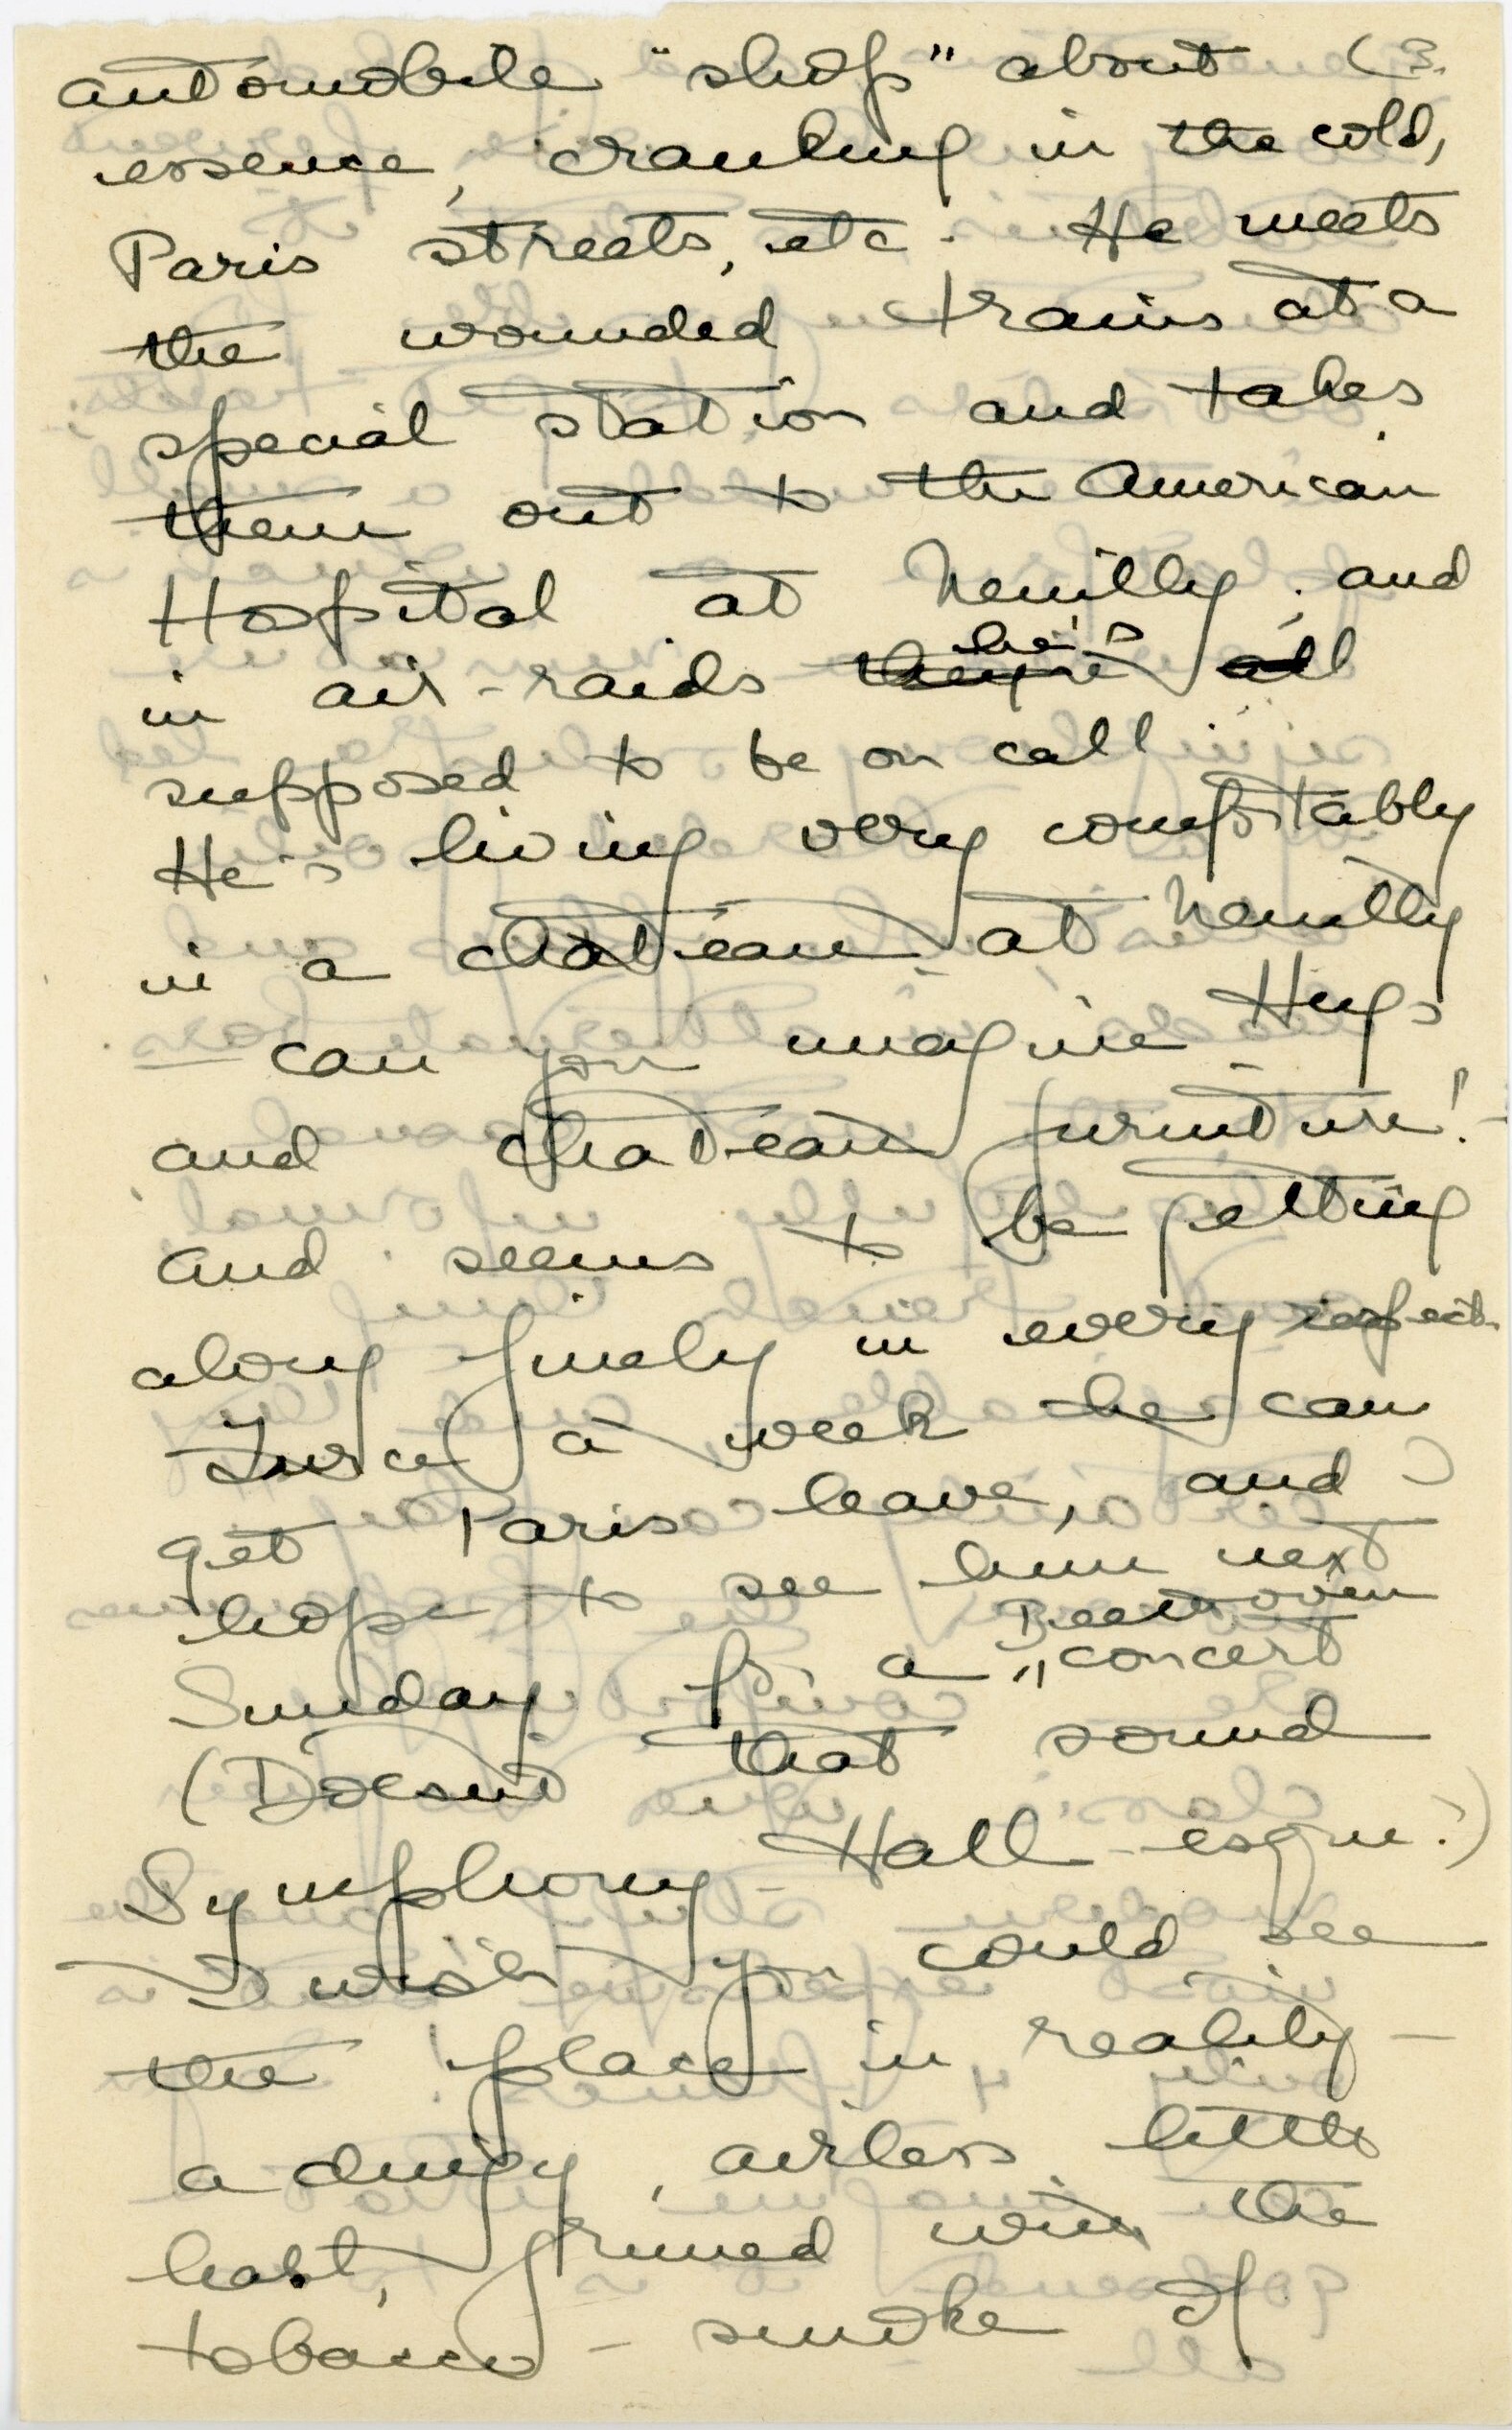 automobile "shop" about (3.
essence, cranking in the cold,
Paris streets, etc. He meets
the wounded trains at a
special station and takes
them out to the American
Hospital at Neuilly; and
in air-raids they're he's all
supposed to be on call
He's living very comfortably
in a chateau at Neuilly
– can you imagine Hugs
and chateau furniture! –
and seems to be getting
along finely in every respect.
Twice a week he can
get Paris leave, and I
hope to see him next
Sunday for a Beethoven concert
(Doesn't that sound
Symphony-Hall-esque?)
I wish you could see
the place in reality –
a dingy, airless little
hall, grimed with the
tobacco-smoke of